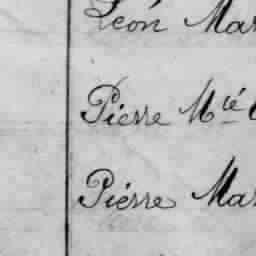 Léon Mar
Piérre Mᶜⁱᵉ
Piérre Mar